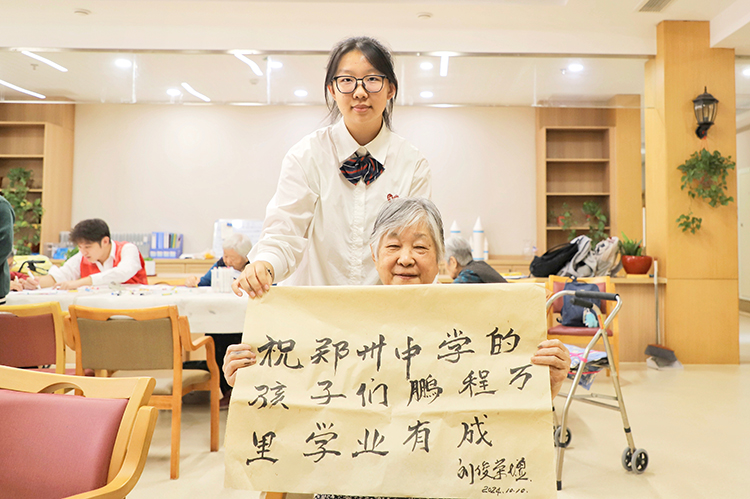 祝郑州中学的
孩子们鹏程万
里学业有成
2024.10.10.